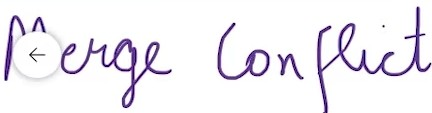 Merge Conflict